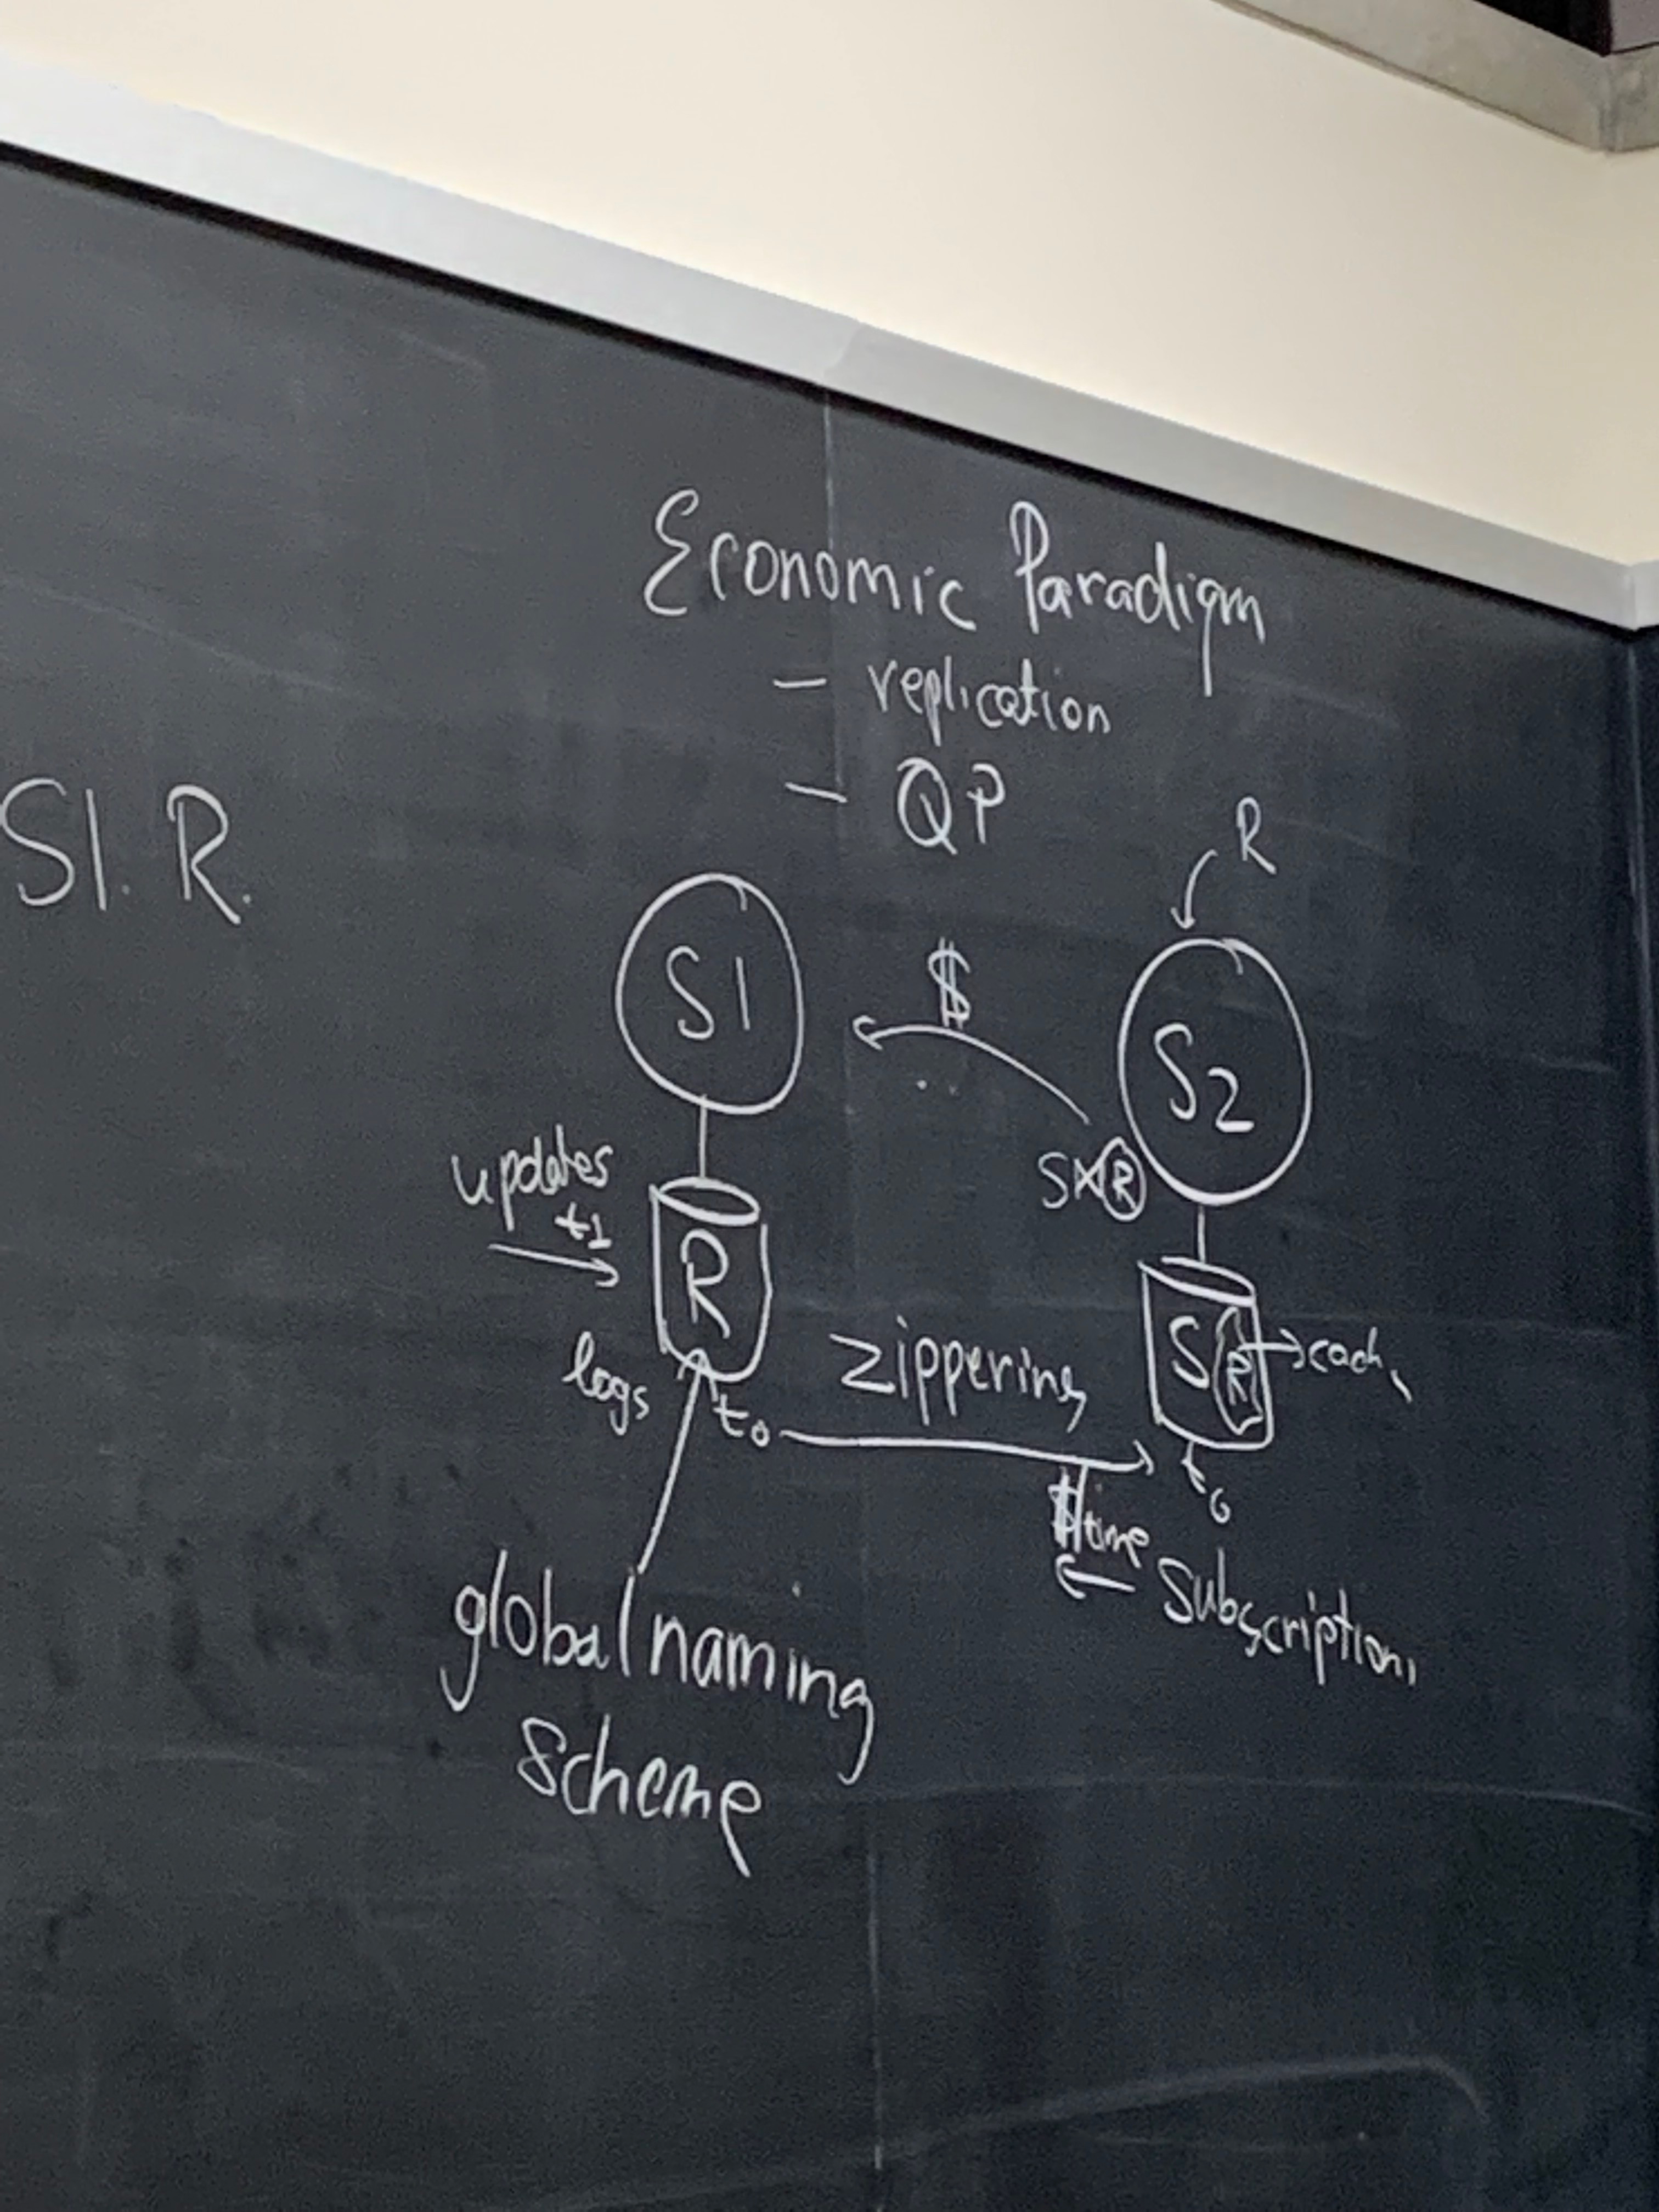 Economic Paradigm
- replication
- QP
S1. R.
R
S1
$
S2
updates
t1
S⋈R
R
logs
t0
zippering
S R
cach
t0
$/time
subscription
global naming
scheme